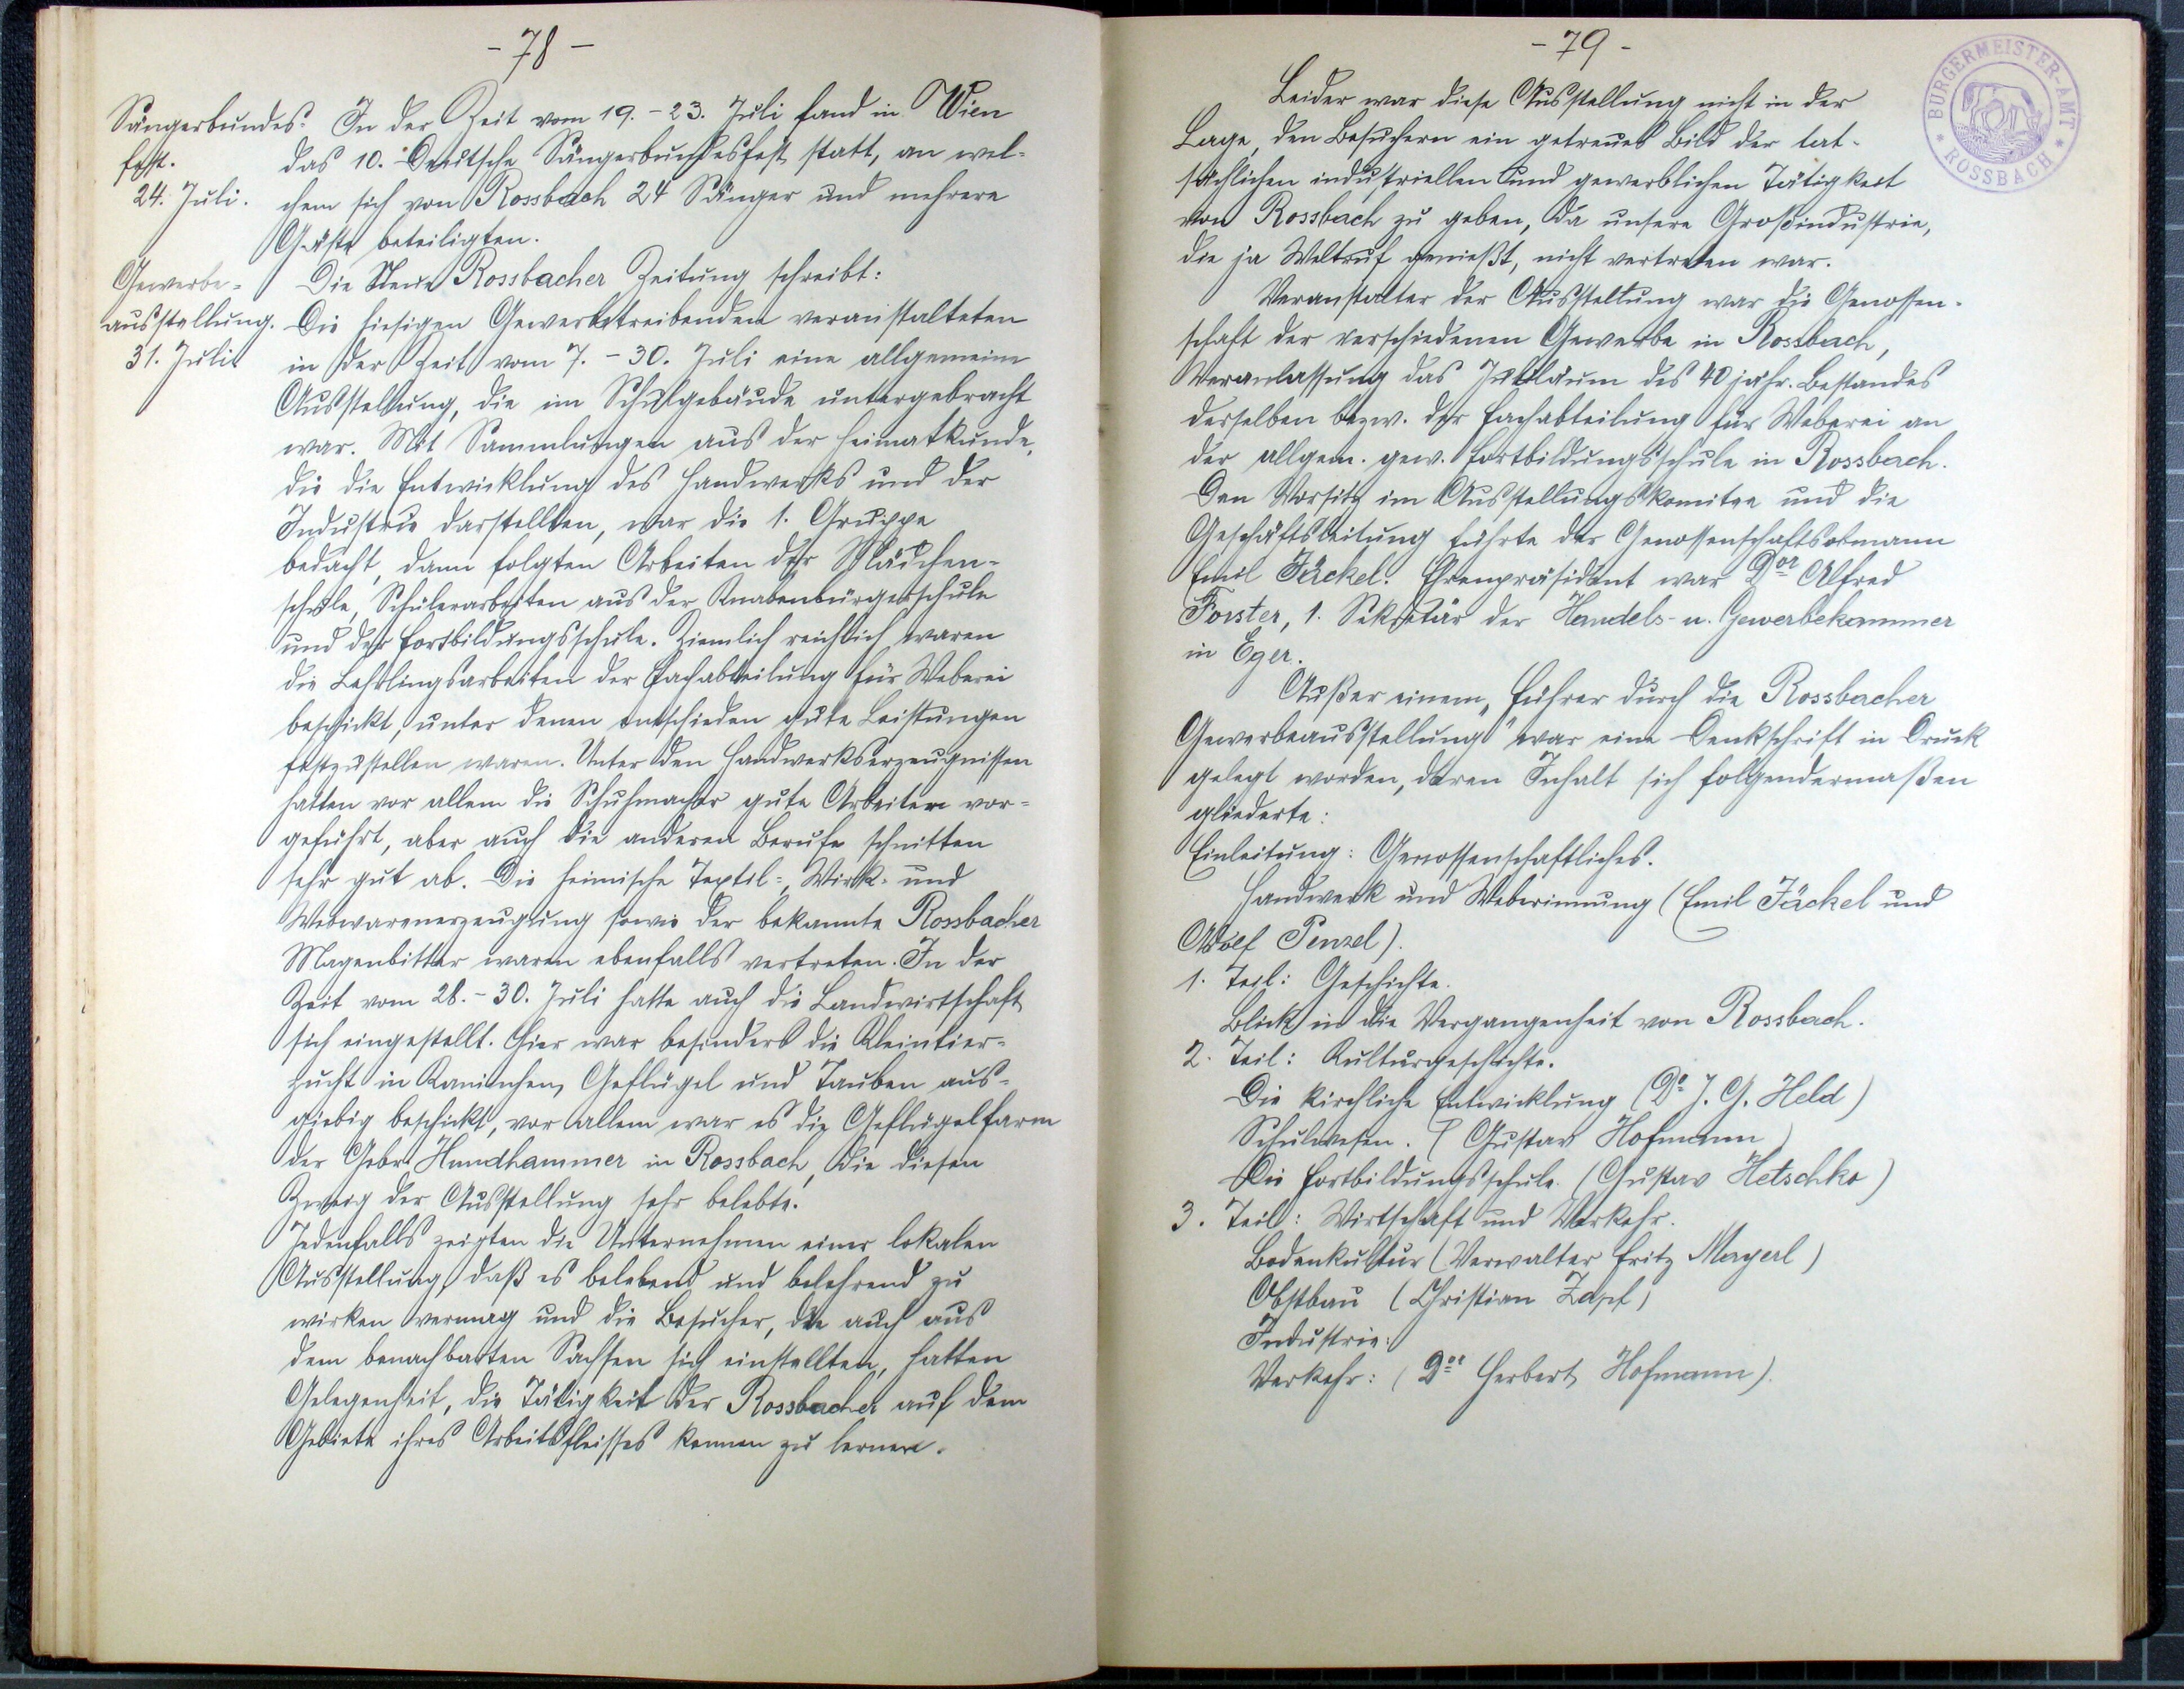 - 78 -
Sängerbundes-
fest.
24. Juli.
In der Zeit vom 19. - 23. Juli fand in Wien
das 10. Deutsche Sängerbundesfest statt, an wel-
chem sich von Rossbach 24 Sänger und mehrere
Gäste beteiligten.
Gewerbe-
ausstellung.
31. Juli
Die Neue Rossbacher Zeitung schreibt:
Die hiesigen Gewerbetreibenden veranstalteten
in der Zeit vom 7. - 30. Juli eine allgemeine
Ausstellung, die im Schulgebäude untergebracht
war. Mit Sammlungen aus der Heimatkunde,
die die Entwicklung des Handwerks und der
Industrie darstellten, war die 1. Gruppe
bedacht, dann folgten Arbeiten der Mädchen-
schule, Schülerarbeiten aus der Knabenbürgerschule
und der Fortbildungsschule. Ziemlich reichlich waren
die Lehrlingsarbeiten der Fachabteilung für Weberei
beschickt, unter denen entschieden gute Leistungen
festzustellen waren. Unter den Handwerkserzeugnissen
hatten vor allem die Schuhmacher gute Arbeiten vor-
geführt, aber auch die anderen Berufe schnitten
sehr gut ab. Die heimische Textil-, Wirk- und
Webwarenerzeugung sowie der bekannte Rossbacher
Magenbitter waren ebenfalls vertreten. In der
Zeit vom 28. - 30. Juli hatte auch die Landwirtschaft
sich eingestellt. Hier war besonders die Kleintier-
zucht in Kaninchen, Geflügel und Tauben aus-
giebig beschickt, vor allem war es die Geflügelfarm
der Gebr. Hundhammer in Rossbach, die diesen
Zweig der Ausstellung sehr belebte.
Jedenfalls zeigten die Unternehmen einer lokalen
Ausstellung, daß es belebend und belehrend zu
wirken vermag und die Besucher, die auch aus
dem benachbarten Sachsen sich einstellten, hatten
Gelegenheit, die Tätigkeit der Rossbacher auf dem
Gebiete ihres Arbeitsfleisses kennen zu lernen.
- 79 -
BÜRGERMEISTER-AMT
* ROSSBACH *
Leider war diese Ausstellung nicht in der
Lage, den Besuchern ein getreues Bild der tat-
sächlichen industriellen und gewerblichen Tätigkeit
von Rossbach zu geben, da unsere Großindustrie,
die ja Weltruf genießt, nicht vertreten war.
Veranstalter der Ausstellung war die Genossen-
schaft der verschiedenen Gewerbe in Rossbach,
Veranlassung das Jubiläum des 40 jähr. Bestandes
derselben bezw. der Fachabteilung für Weberei an
der allgem. gew. Fortbildungsschule in Rossbach.
Den Vorsitz im Ausstellungskomitee und die
Geschäftsleitung führte der Genossenschaftsobmann
Emil Jäckel. Ehrenpräsident war Dor Alfred
Forster, 1. Sekretär der Handels- u. Gewerbekammer
in Eger.
Außer einem „Führer durch die Rossbacher
Gewerbeausstellung" war eine Denkschrift in Druck
gelegt worden, deren Inhalt sich folgendermaßen
gliederte:
Einleitung: Genossenschaftliches.
Handwerk und Weberinnung (Emil Jäckel und
Adolf Penzel).
1. Teil: Geschichte.
Blick in die Vergangenheit von Rossbach.
2. Teil: Kulturgeschichte.
Die kirchliche Entwicklung (Dr J. G. Held)
Schulwesen. (Gustav Hofmann)
Die Fortbildungsschule. (Gustav Hetschko)
3. Teil: Wirtschaft und Verkehr.
Bodenkultur (Verwalter Fritz Mayerl)
Obstbau (Christian Zapf)
Industrie:
Verkehr: (Dor Herbert Hofmann).